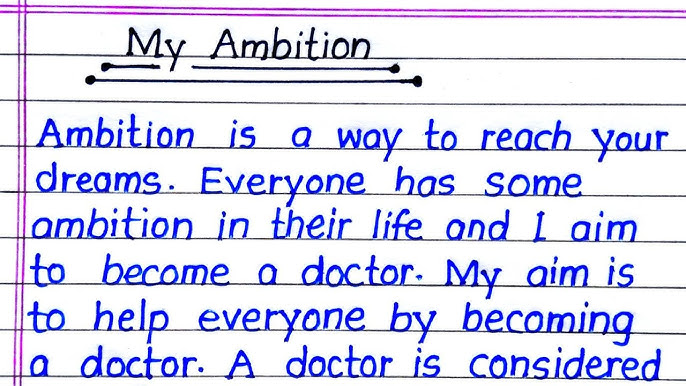 My Ambition
Ambition is a way to reach your
dreams. Everyone has some
ambition in their life and I aim
to become a doctor. My aim is
to help everyone by becoming
a doctor. A doctor is considered